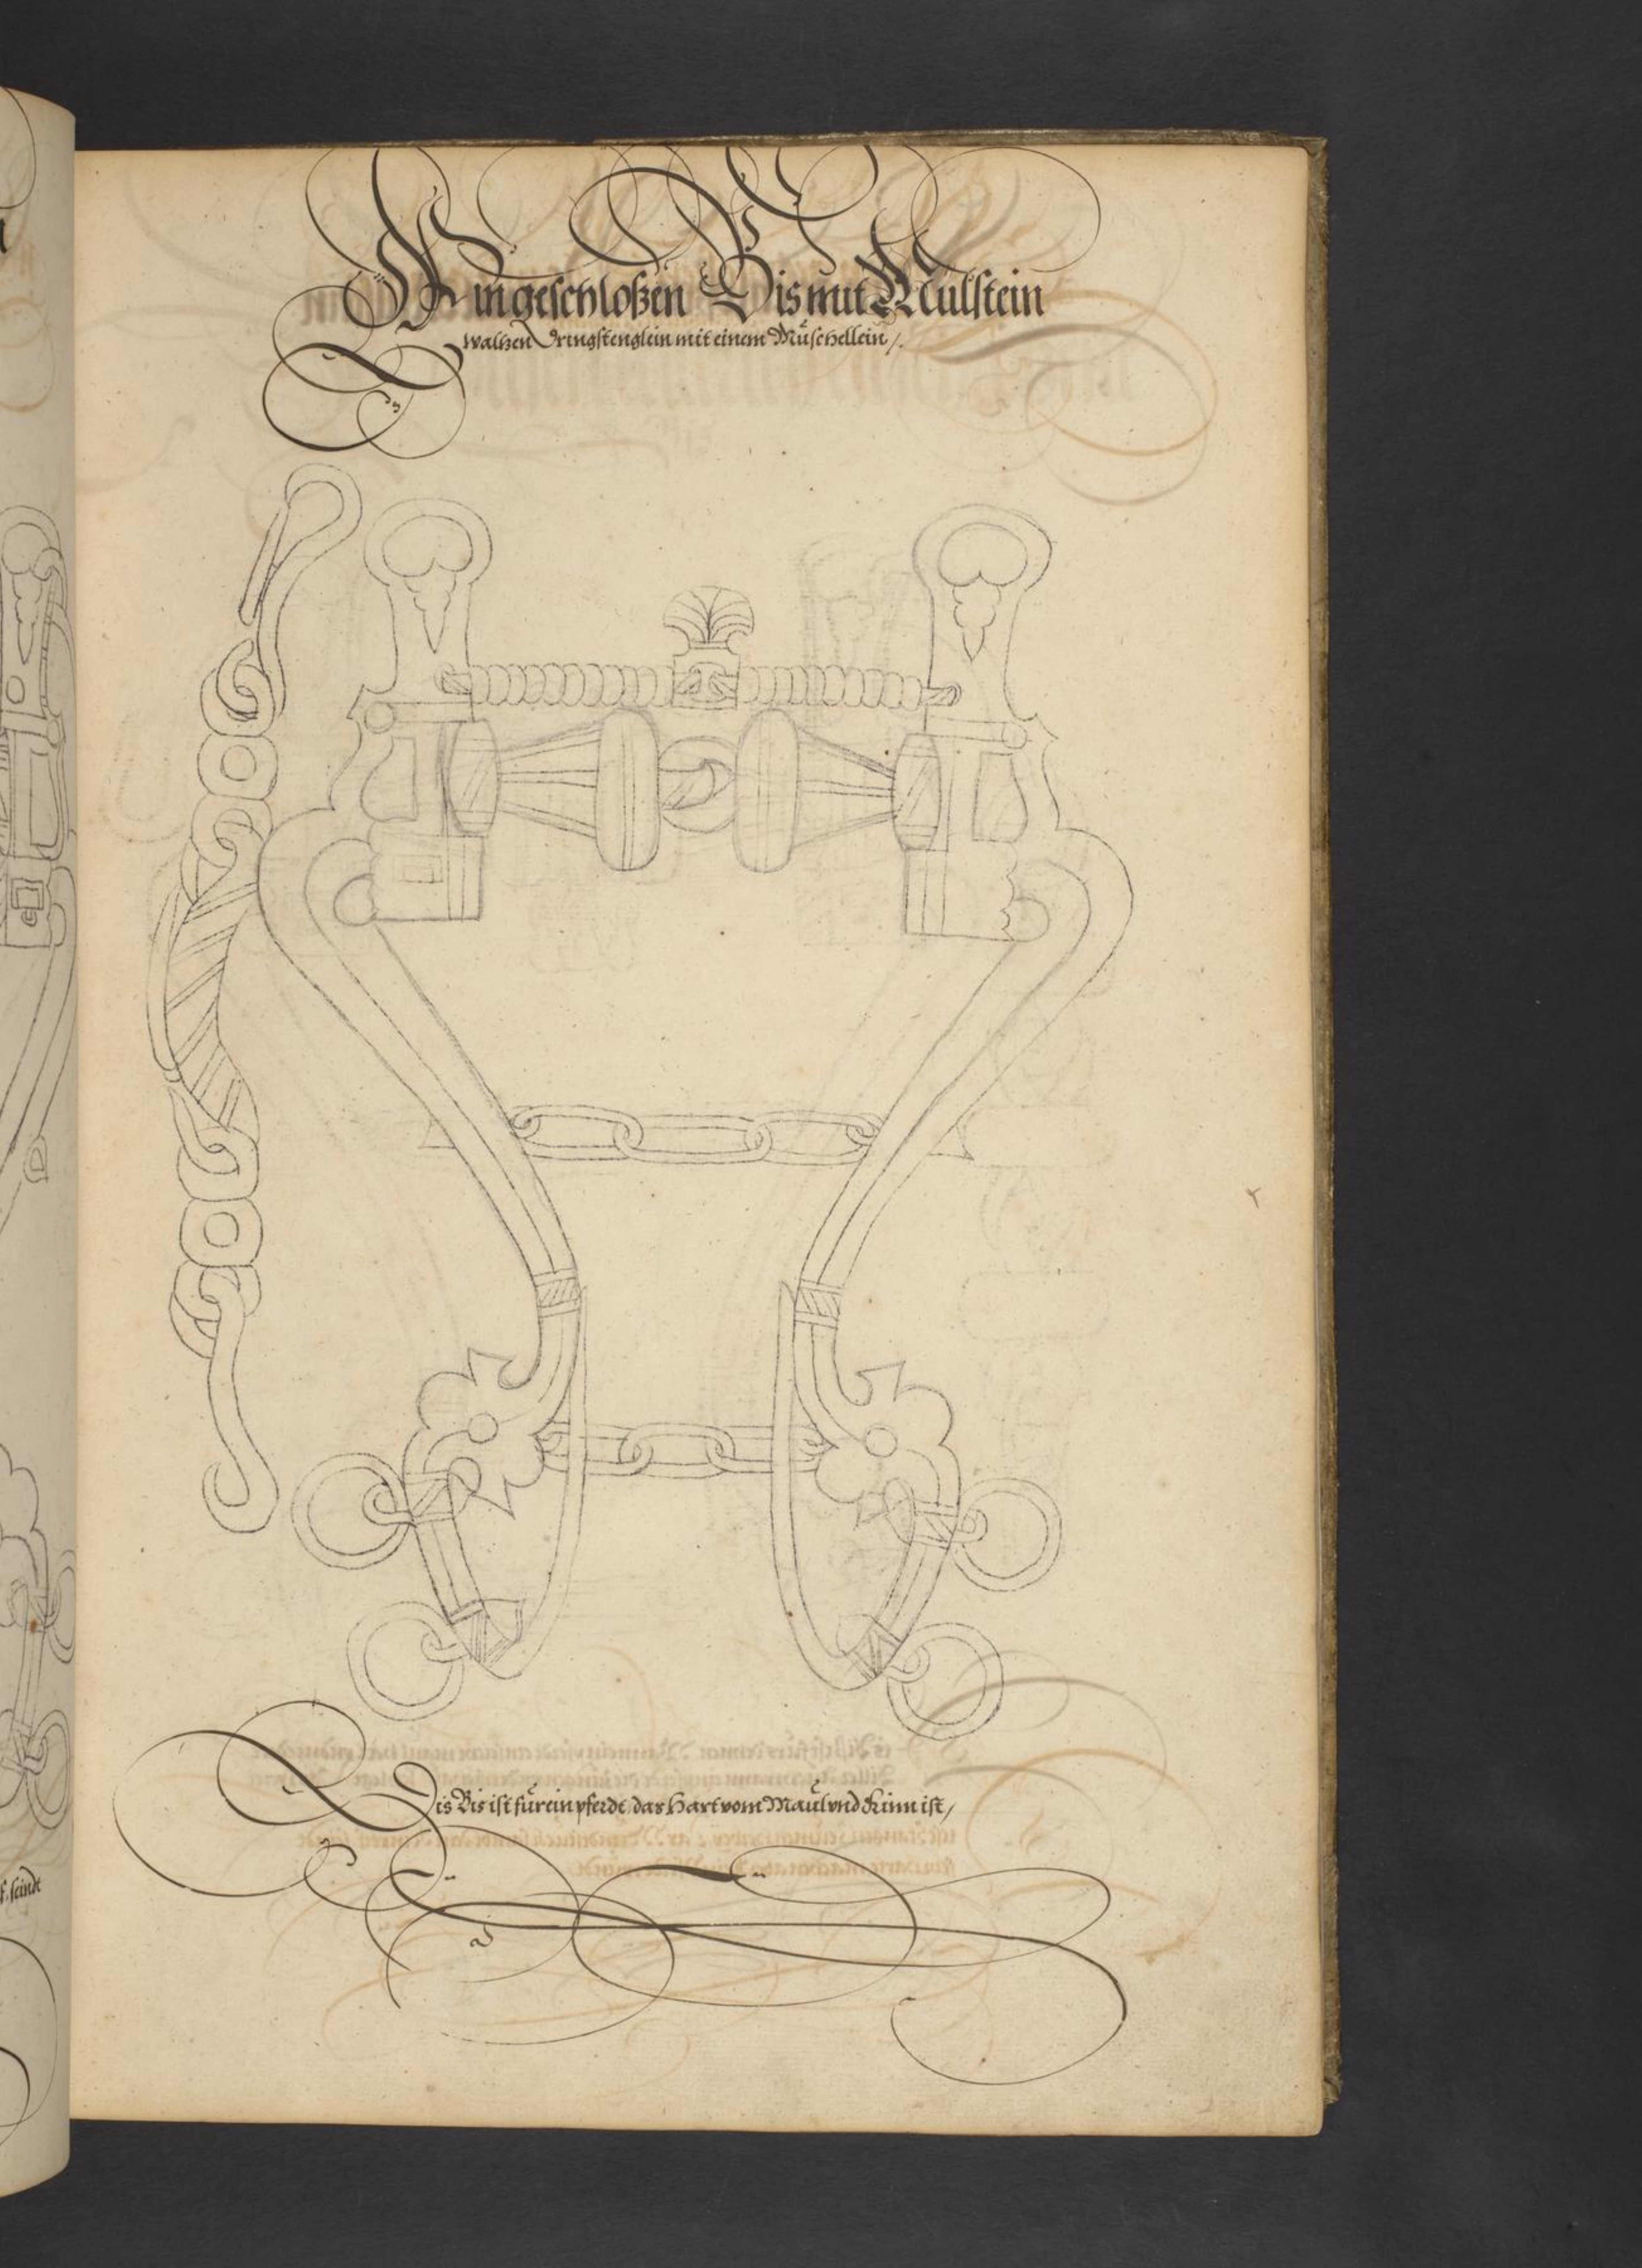 Ein geschloßen Bis mit Mülstein
waltzen Dringstenglein mit einem Müschellein /.
Dis Bis ist für ein pferdt das Hart vom Maul vnd Kinn ist /
seindt